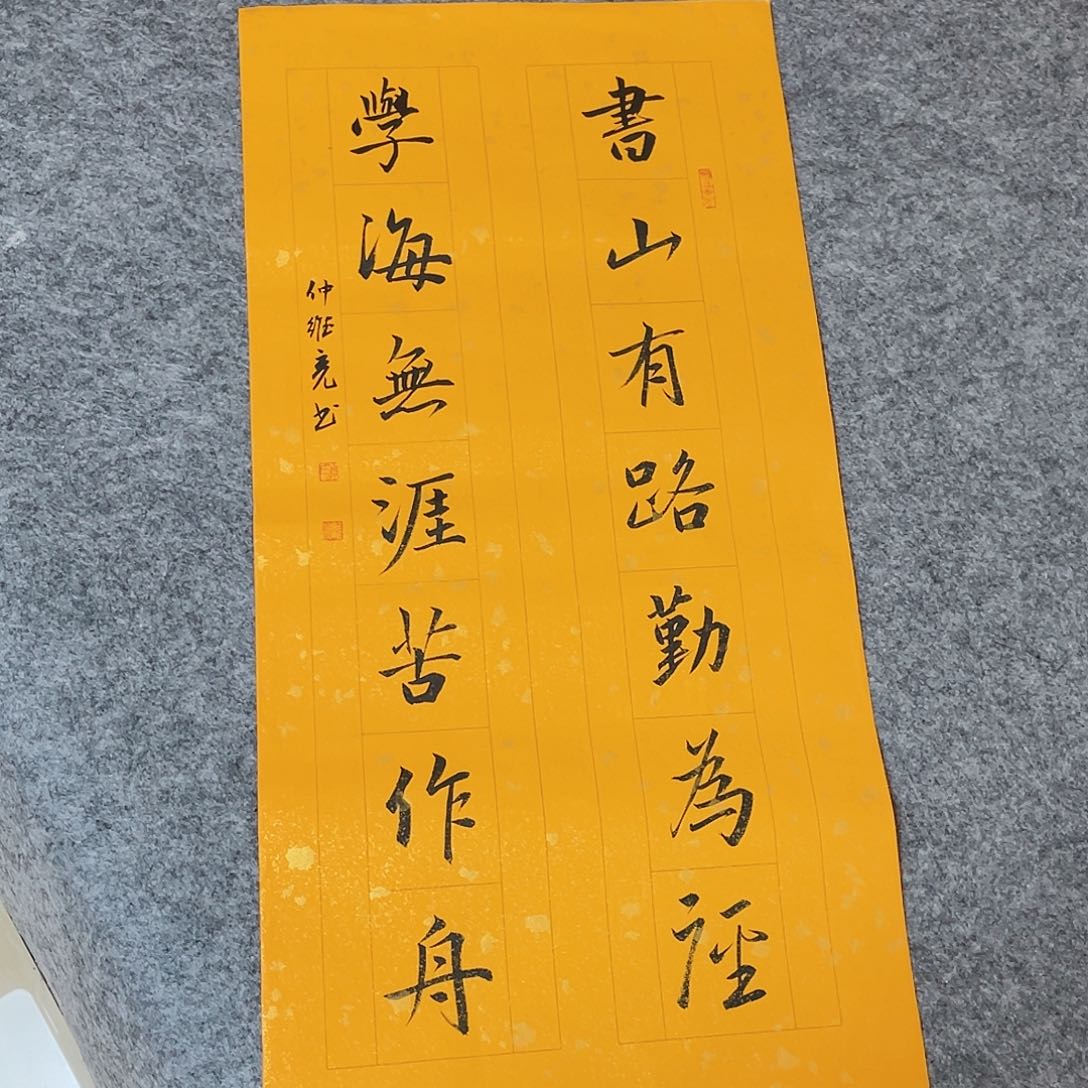 書山有路勤為徑
學海無涯苦作舟
仲維亮书